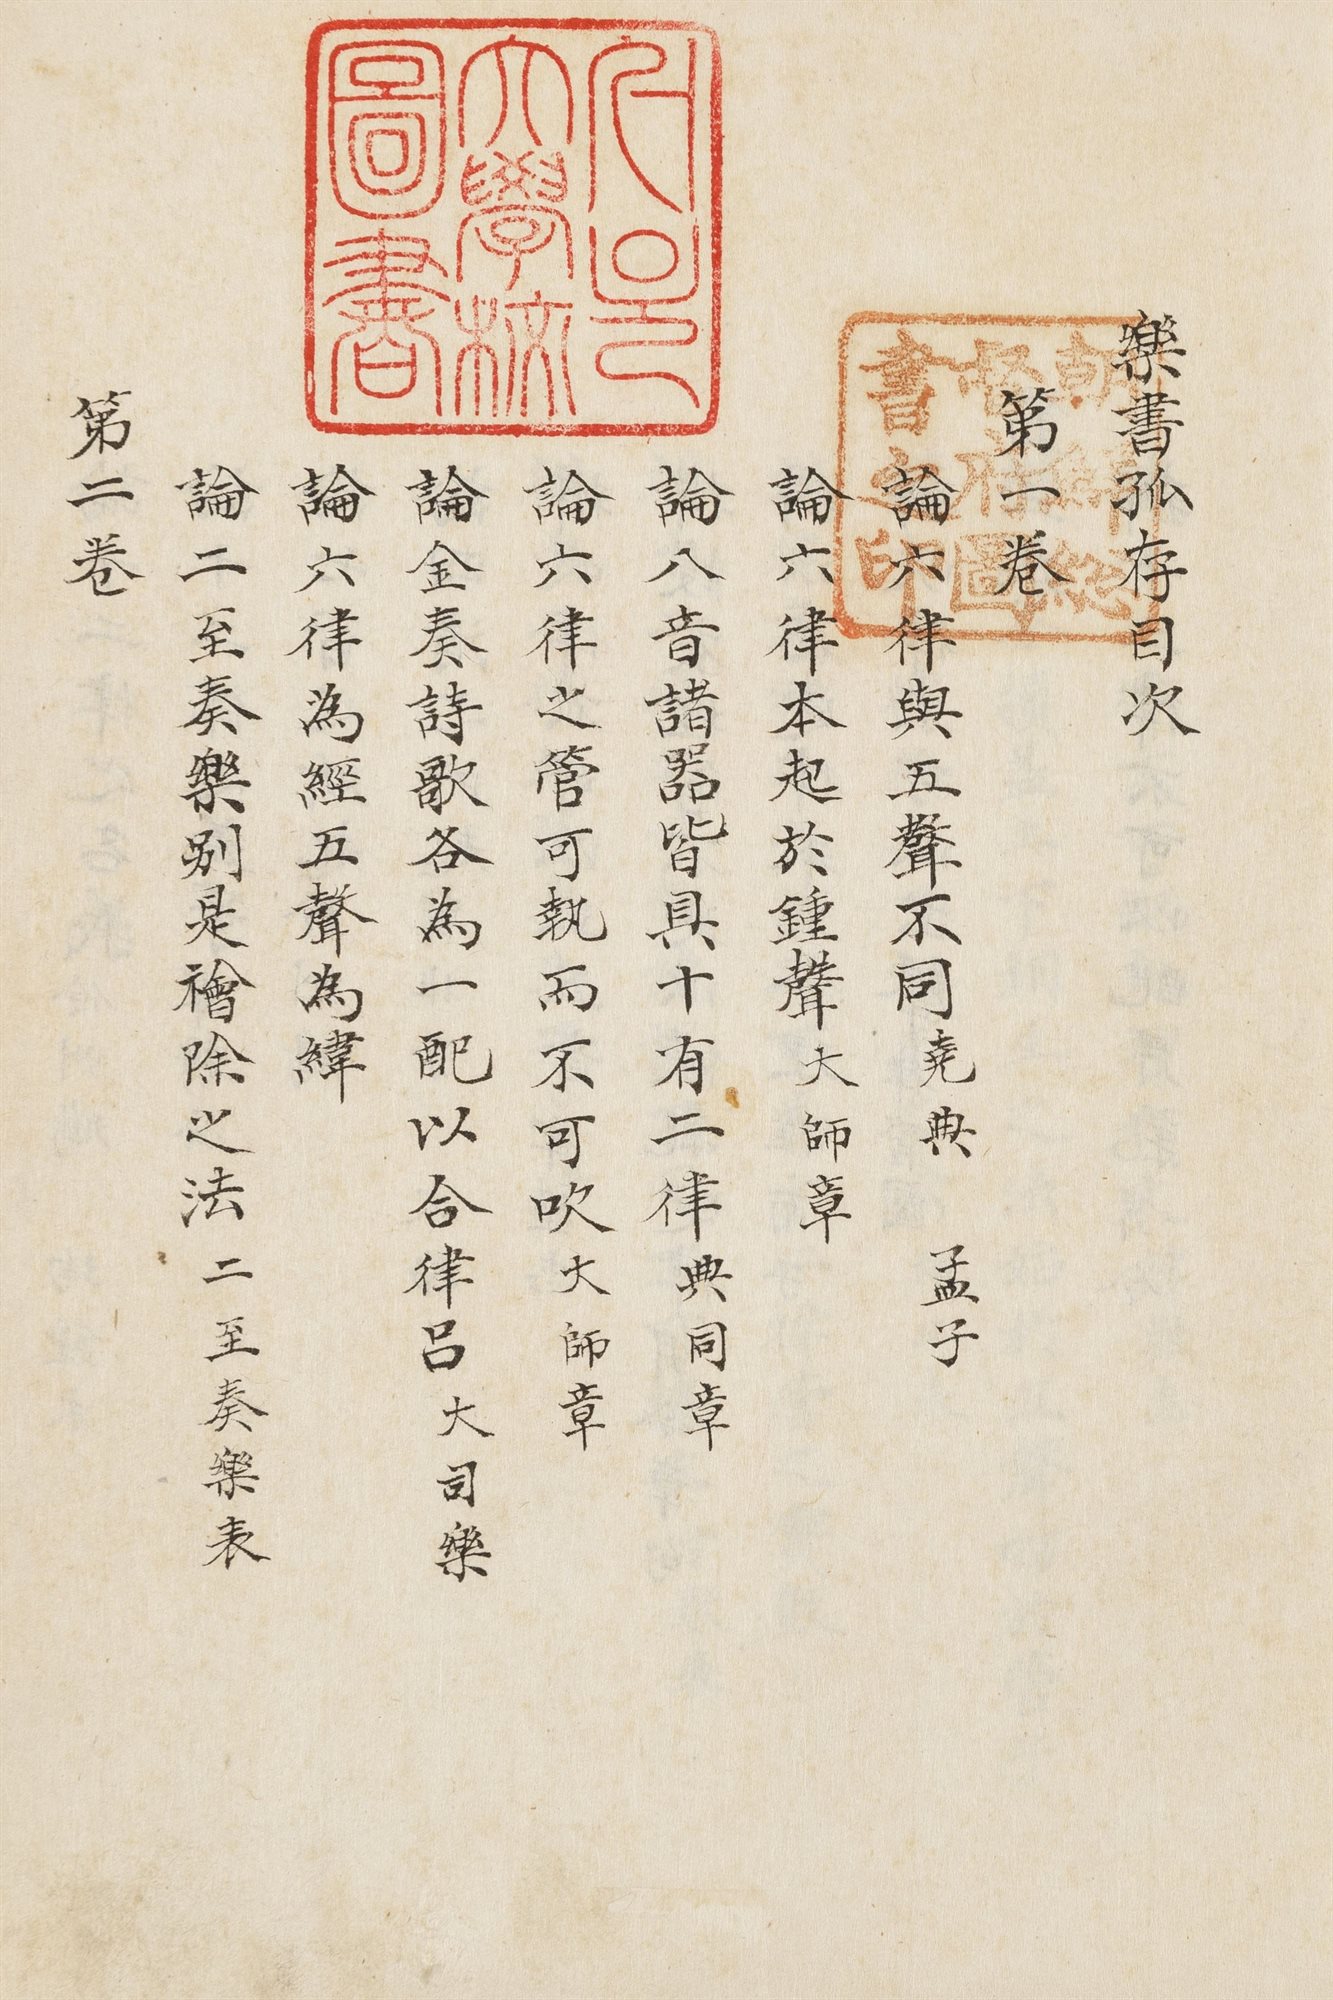 樂書孤存目次
第一卷
論六律與五聲不同 堯典 孟子
論六律本起於鍾聲 大師章
論八音諸器皆具十有二律 典同章
論六律之管可執而不可吹 大師章
論金奏詩歌各為一配以合律呂 大司樂
論六律為經五聲為緯
論二至奏樂別是禬除之法 二至奏樂表
第二卷
大學校
圖書
朝鮮總
督府圖
書之印